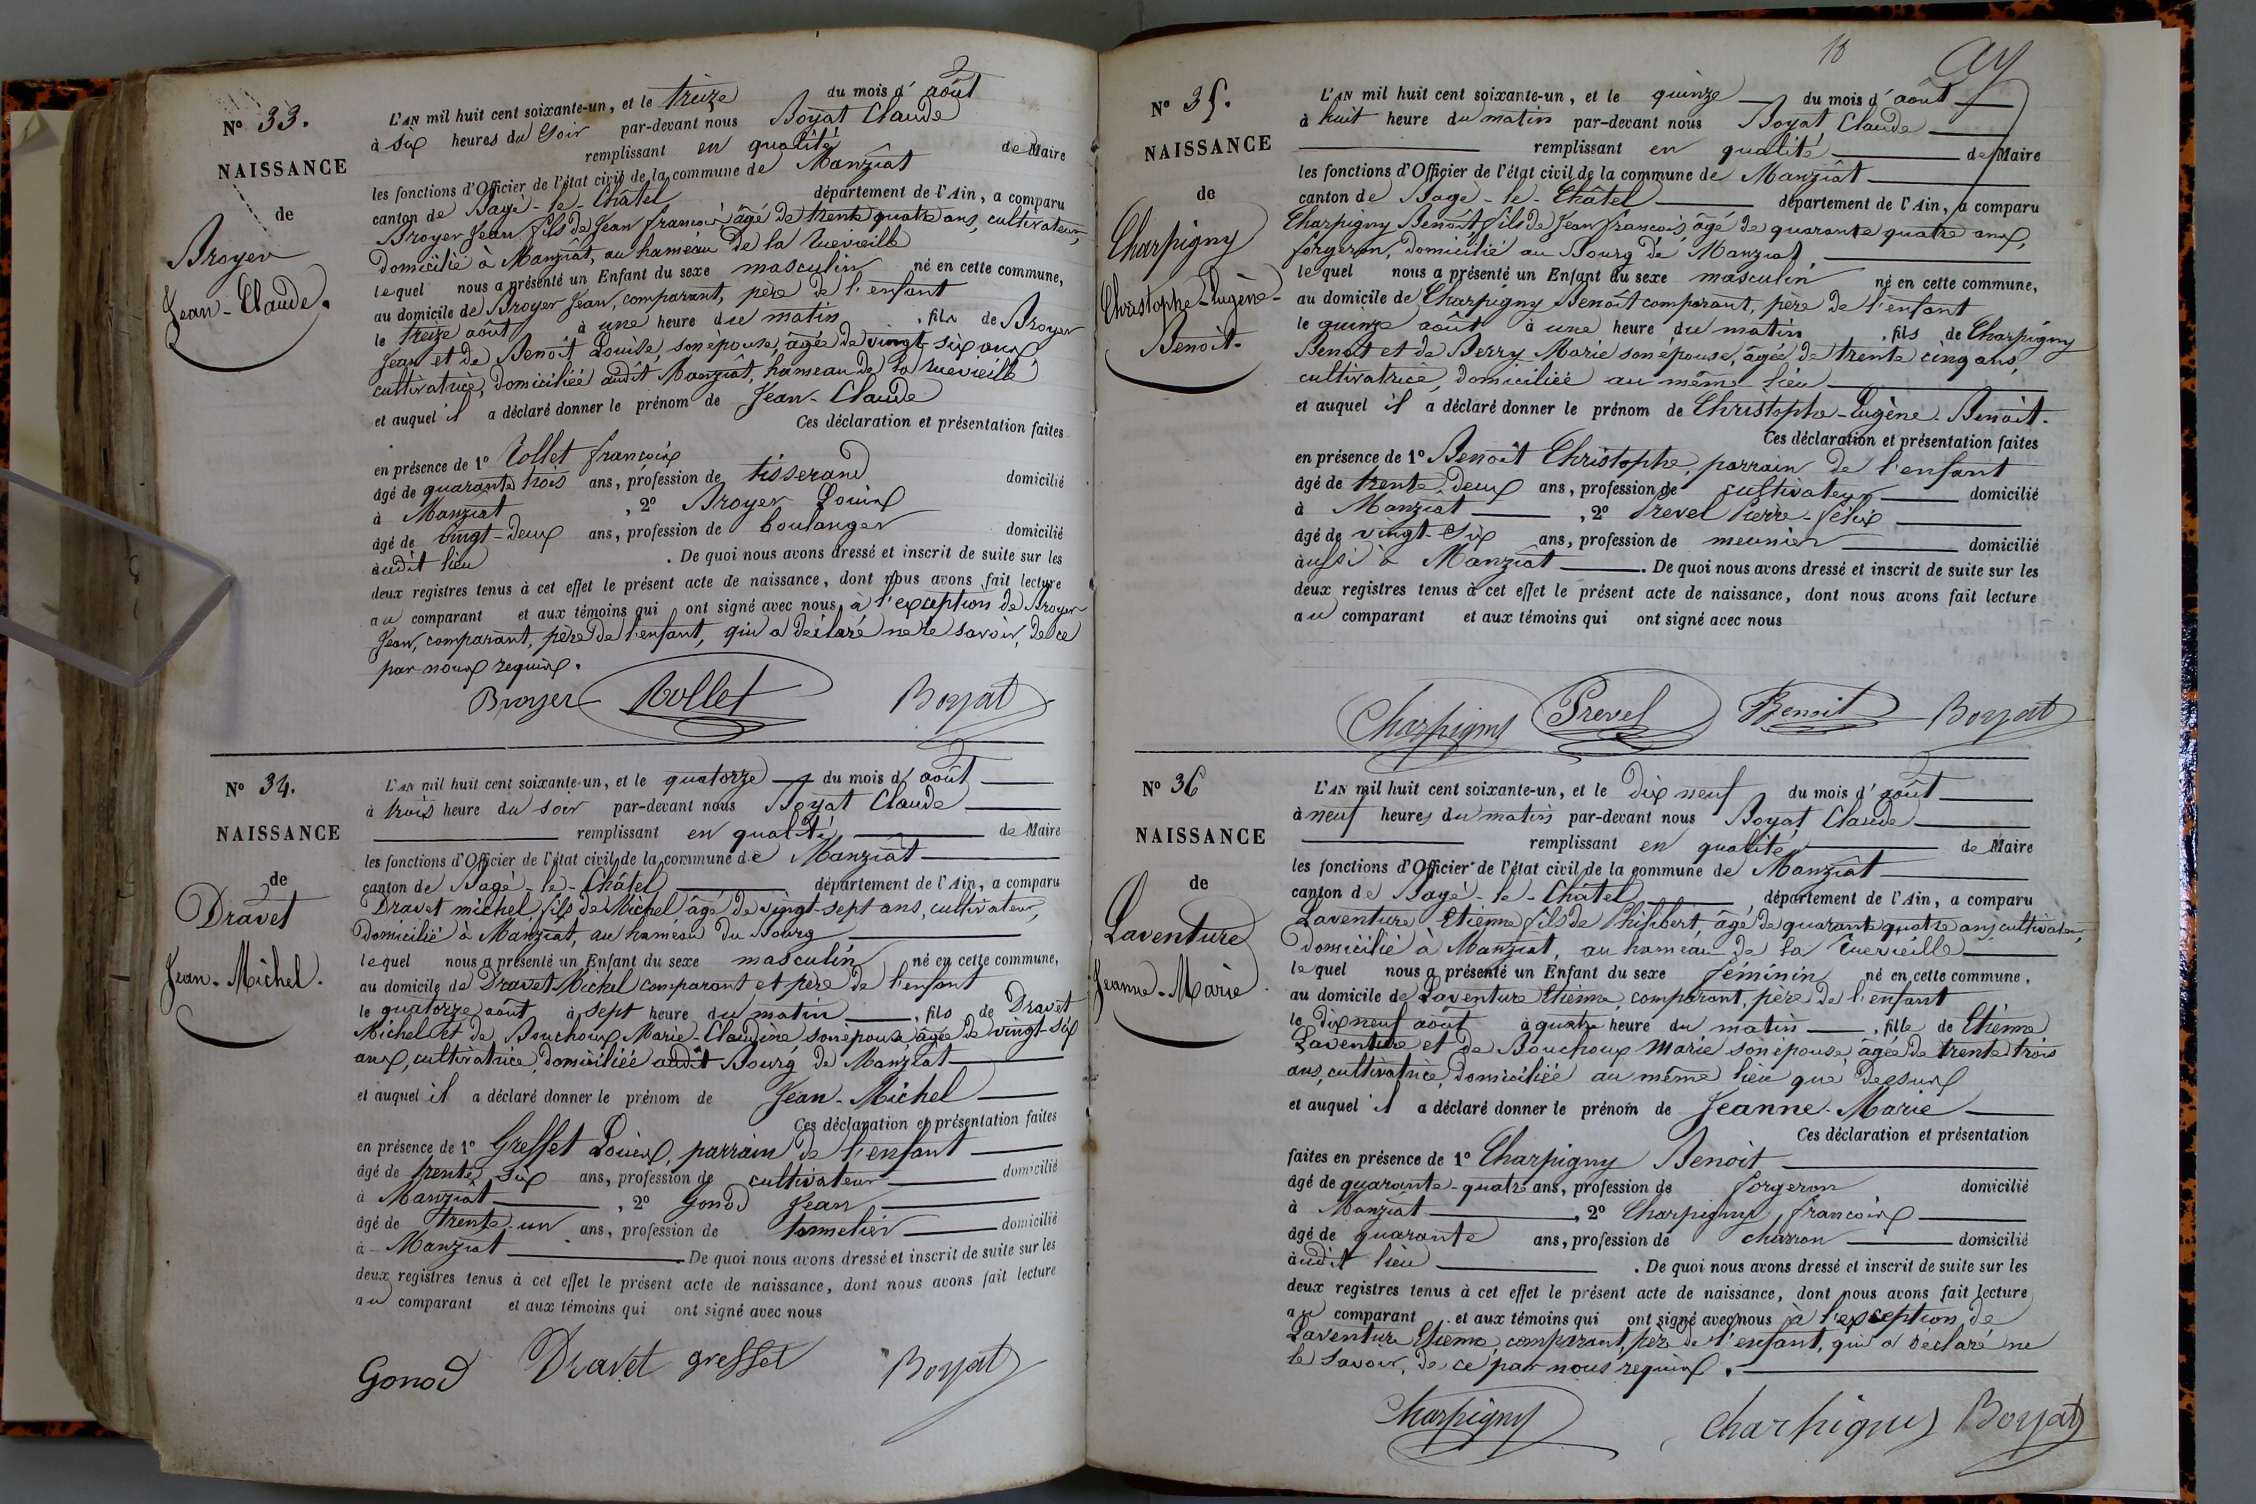 N° 33.
NAISSANCE
de
Broyer
Jean-Claude.
L'AN mil huit cent soixante-un, et le treize du mois d'août
à six heures du soir par-devant nous Boyat Claude
remplissant en qualité de Maire
les fonctions d'Officier de l'état civil de la commune de Manziat
canton de Bagé-le-Châtel département de l'Ain, a comparu
Broyer Jean fils de Jean françois âgé de trente quatre ans, cultivateur,
domicilié à Manziat, au hameau de la Ruevieille
lequel nous a présenté un Enfant du sexe masculin né en cette commune,
au domicile de Broyer Jean, comparant, père de l'enfant
le treize août à une heure du matin, fils de Broyer
Jean et de Benoît Louise, son épouse, âgée de vingt-six ans
cultivatrice, domiciliée audit Manziat, hameau de la Ruevieille
et auquel il a déclaré donner le prénom de Jean-Claude
Ces déclaration et présentation faites
en présence de 1° Rollet françois
âgé de quarante trois ans, profession de tisserand domicilié
à Manziat, 2° Broyer Louis
âgé de vingt-deux ans, profession de boulanger domicilié
audit lieu. De quoi nous avons dressé et inscrit de suite sur les
deux registres tenus à cet effet le présent acte de naissance, dont nous avons fait lecture
au comparant et aux témoins qui ont signé avec nous à l'exception de Broyer
Jean, comparant, père de l'enfant, qui a déclaré ne le savoir, de ce
par nous requis.
Broyer Rollet Boyat
N° 34.
NAISSANCE
de
Dravet
Jean-Michel.
L'AN mil huit cent soixante-un, et le quatorze du mois d'août
à trois heure du soir par-devant nous Boyat Claude
remplissant en qualité de Maire
les fonctions d'Officier de l'état civil de la commune de Manziat
canton de Bagé-le-Châtel département de l'Ain, a comparu
Dravet michel fils de Michel âgé de vingt-sept ans, cultivateur,
domicilié à Manziat, au hameau du Bourg
lequel nous a présenté un Enfant du sexe masculin né en cette commune,
au domicile de Dravet Michel comparant et père de l'enfant
le quatorze août à sept heure du matin, fils de Dravet
Michel et de Bouchoux Marie-Claudine son épouse âgée de vingt-six
ans, cultivatrice, domiciliée audit Bourg de Manziat
et auquel il a déclaré donner le prénom de Jean-Michel
Ces déclaration et présentation faites
en présence de 1° Greffet Louis, parrain de l'enfant
âgé de trente six ans, profession de cultivateur domicilié
à Manziat, 2° Gonod Jean
âgé de trente-un ans, profession de tonnelier domicilié
à Manziat. De quoi nous avons dressé et inscrit de suite sur les
deux registres tenus à cet effet le présent acte de naissance, dont nous avons fait lecture
au comparant et aux témoins qui ont signé avec nous
Gonod Dravet greffet Boyat
18
N° 35.
NAISSANCE
de
Charpigny
Christophe-Eugène-
Benoît.
L'AN mil huit cent soixante-un, et le quinze du mois d'août
à huit heure du matin par-devant nous Boyat Claude
remplissant en qualité de Maire
les fonctions d'Officier de l'état civil de la commune de Manziat
canton de Bagé-le-Châtel département de l'Ain, a comparu
Charpigny Benoît fils de Jean françois âgé de quarante quatre ans,
forgeron, domicilié au Bourg de Manziat,
lequel nous a présenté un Enfant du sexe masculin né en cette commune,
au domicile de Charpigny Benoît comparant, père de l'enfant
le quinze août à une heure du matin, fils de Charpigny
Benoît et de Berry Marie son épouse, âgée de trente cinq ans,
cultivatrice, domiciliée au même lieu
et auquel il a déclaré donner le prénom de Christophe-Eugène-Benoît.
Ces déclaration et présentation faites
en présence de 1° Benoît Christophe, parrain de l'enfant
âgé de trente-deux ans, profession de cultivateur domicilié
à Manziat, 2° Prevel Pierre-félix
âgé de vingt-six ans, profession de meunier domicilié
aussi à Manziat. De quoi nous avons dressé et inscrit de suite sur les
deux registres tenus à cet effet le présent acte de naissance, dont nous avons fait lecture
au comparant et aux témoins qui ont signé avec nous
Charpigny Prevel Benoit Boyat
N° 36
NAISSANCE
de
Laventure
Jeanne-Marie.
L'AN mil huit cent soixante-un, et le dix neuf du mois d'août
à neuf heures du matin par-devant nous Boyat Claude
remplissant en qualité de Maire
les fonctions d'Officier de l'état civil de la commune de Manziat
canton de Bagé-le-Châtel, département de l'Ain, a comparu
Laventure Etienne fils de Philibert, âgé de quarante quatre ans, cultivateur,
domicilié à Manziat, au hameau de la Ruevieille
lequel nous a présenté un Enfant du sexe féminin né en cette commune,
au domicile de Laventure Etienne, comparant, père de l'enfant
le dix neuf août à quatre heure du matin, fille de Etienne
Laventure et de Bouchoux Marie son épouse, âgée de trente trois
ans, cultivatrice, domiciliée au même lieu que dessus
et auquel il a déclaré donner le prénom de Jeanne-Marie
Ces déclaration et présentation
faites en présence de 1° Charpigny Benoît
âgé de quarante-quatre ans, profession de forgeron domicilié
à Manziat, 2° Charpigny françois
âgé de quarante ans, profession de charron domicilié
audit lieu. De quoi nous avons dressé et inscrit de suite sur les
deux registres tenus à cet effet le présent acte de naissance, dont nous avons fait lecture
au comparant et aux témoins qui ont signé avec nous à l'exception de
Laventure Etienne, comparant, père de l'enfant, qui a déclaré ne
le savoir, de ce par nous requis.
Charpigny Charpigny Boyat